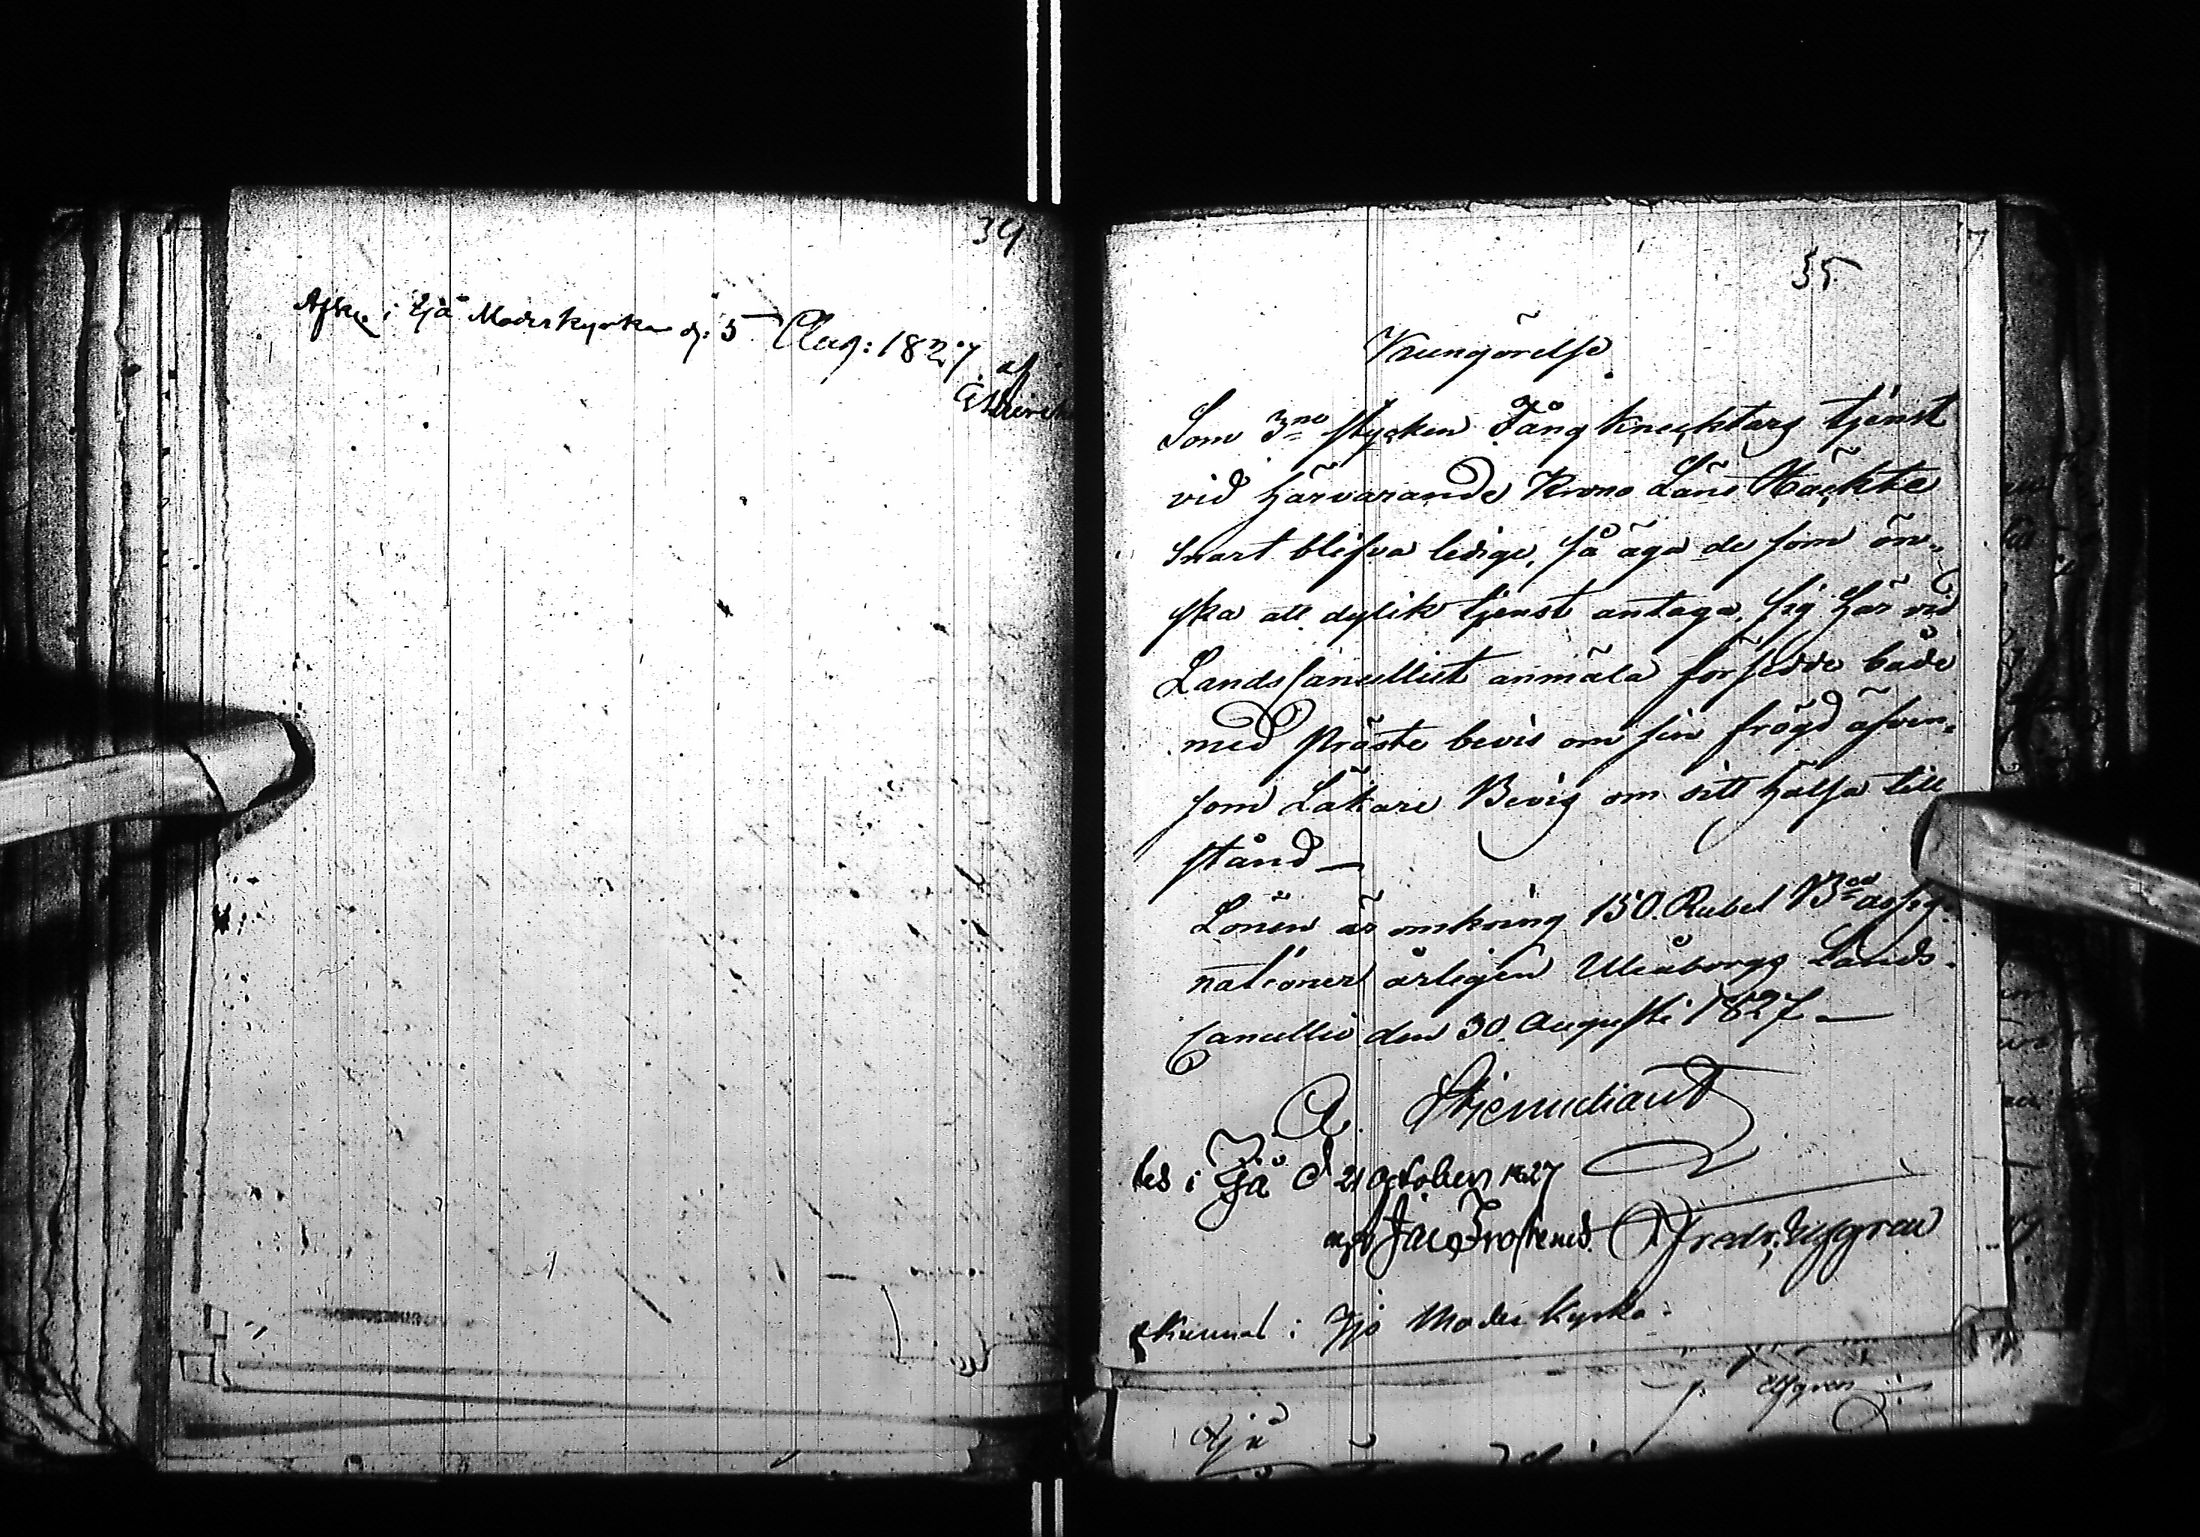 34
i Ijå Moderkyrka d: 5 Aug: 1827
af
35
Kungörelse
Som 3ne stycken Fångknecktars tjenst
vid härvarande Krono Läns Häckte
snart blifva ledige, så äga de som ön-
ska att dylik tjenst antaga, sig här vid
LandsCancelliet anmäla försedde både
med Präste bevis om sin frägd äfven-
som Läkare Bevis om sitt hälsa till
stånd —
Lönen är omkring 150. Rubel Bco assig-
nationer årligen Uleåborgs Lands-
Cancellie den 30. Augusti 1827 —
A. Stjernschantz
i Ijå d 21 October 1827
af Jac Frosterus. Fredr: Elfgren
i Ijo Moder Kyrka
Elfgren
Ijå